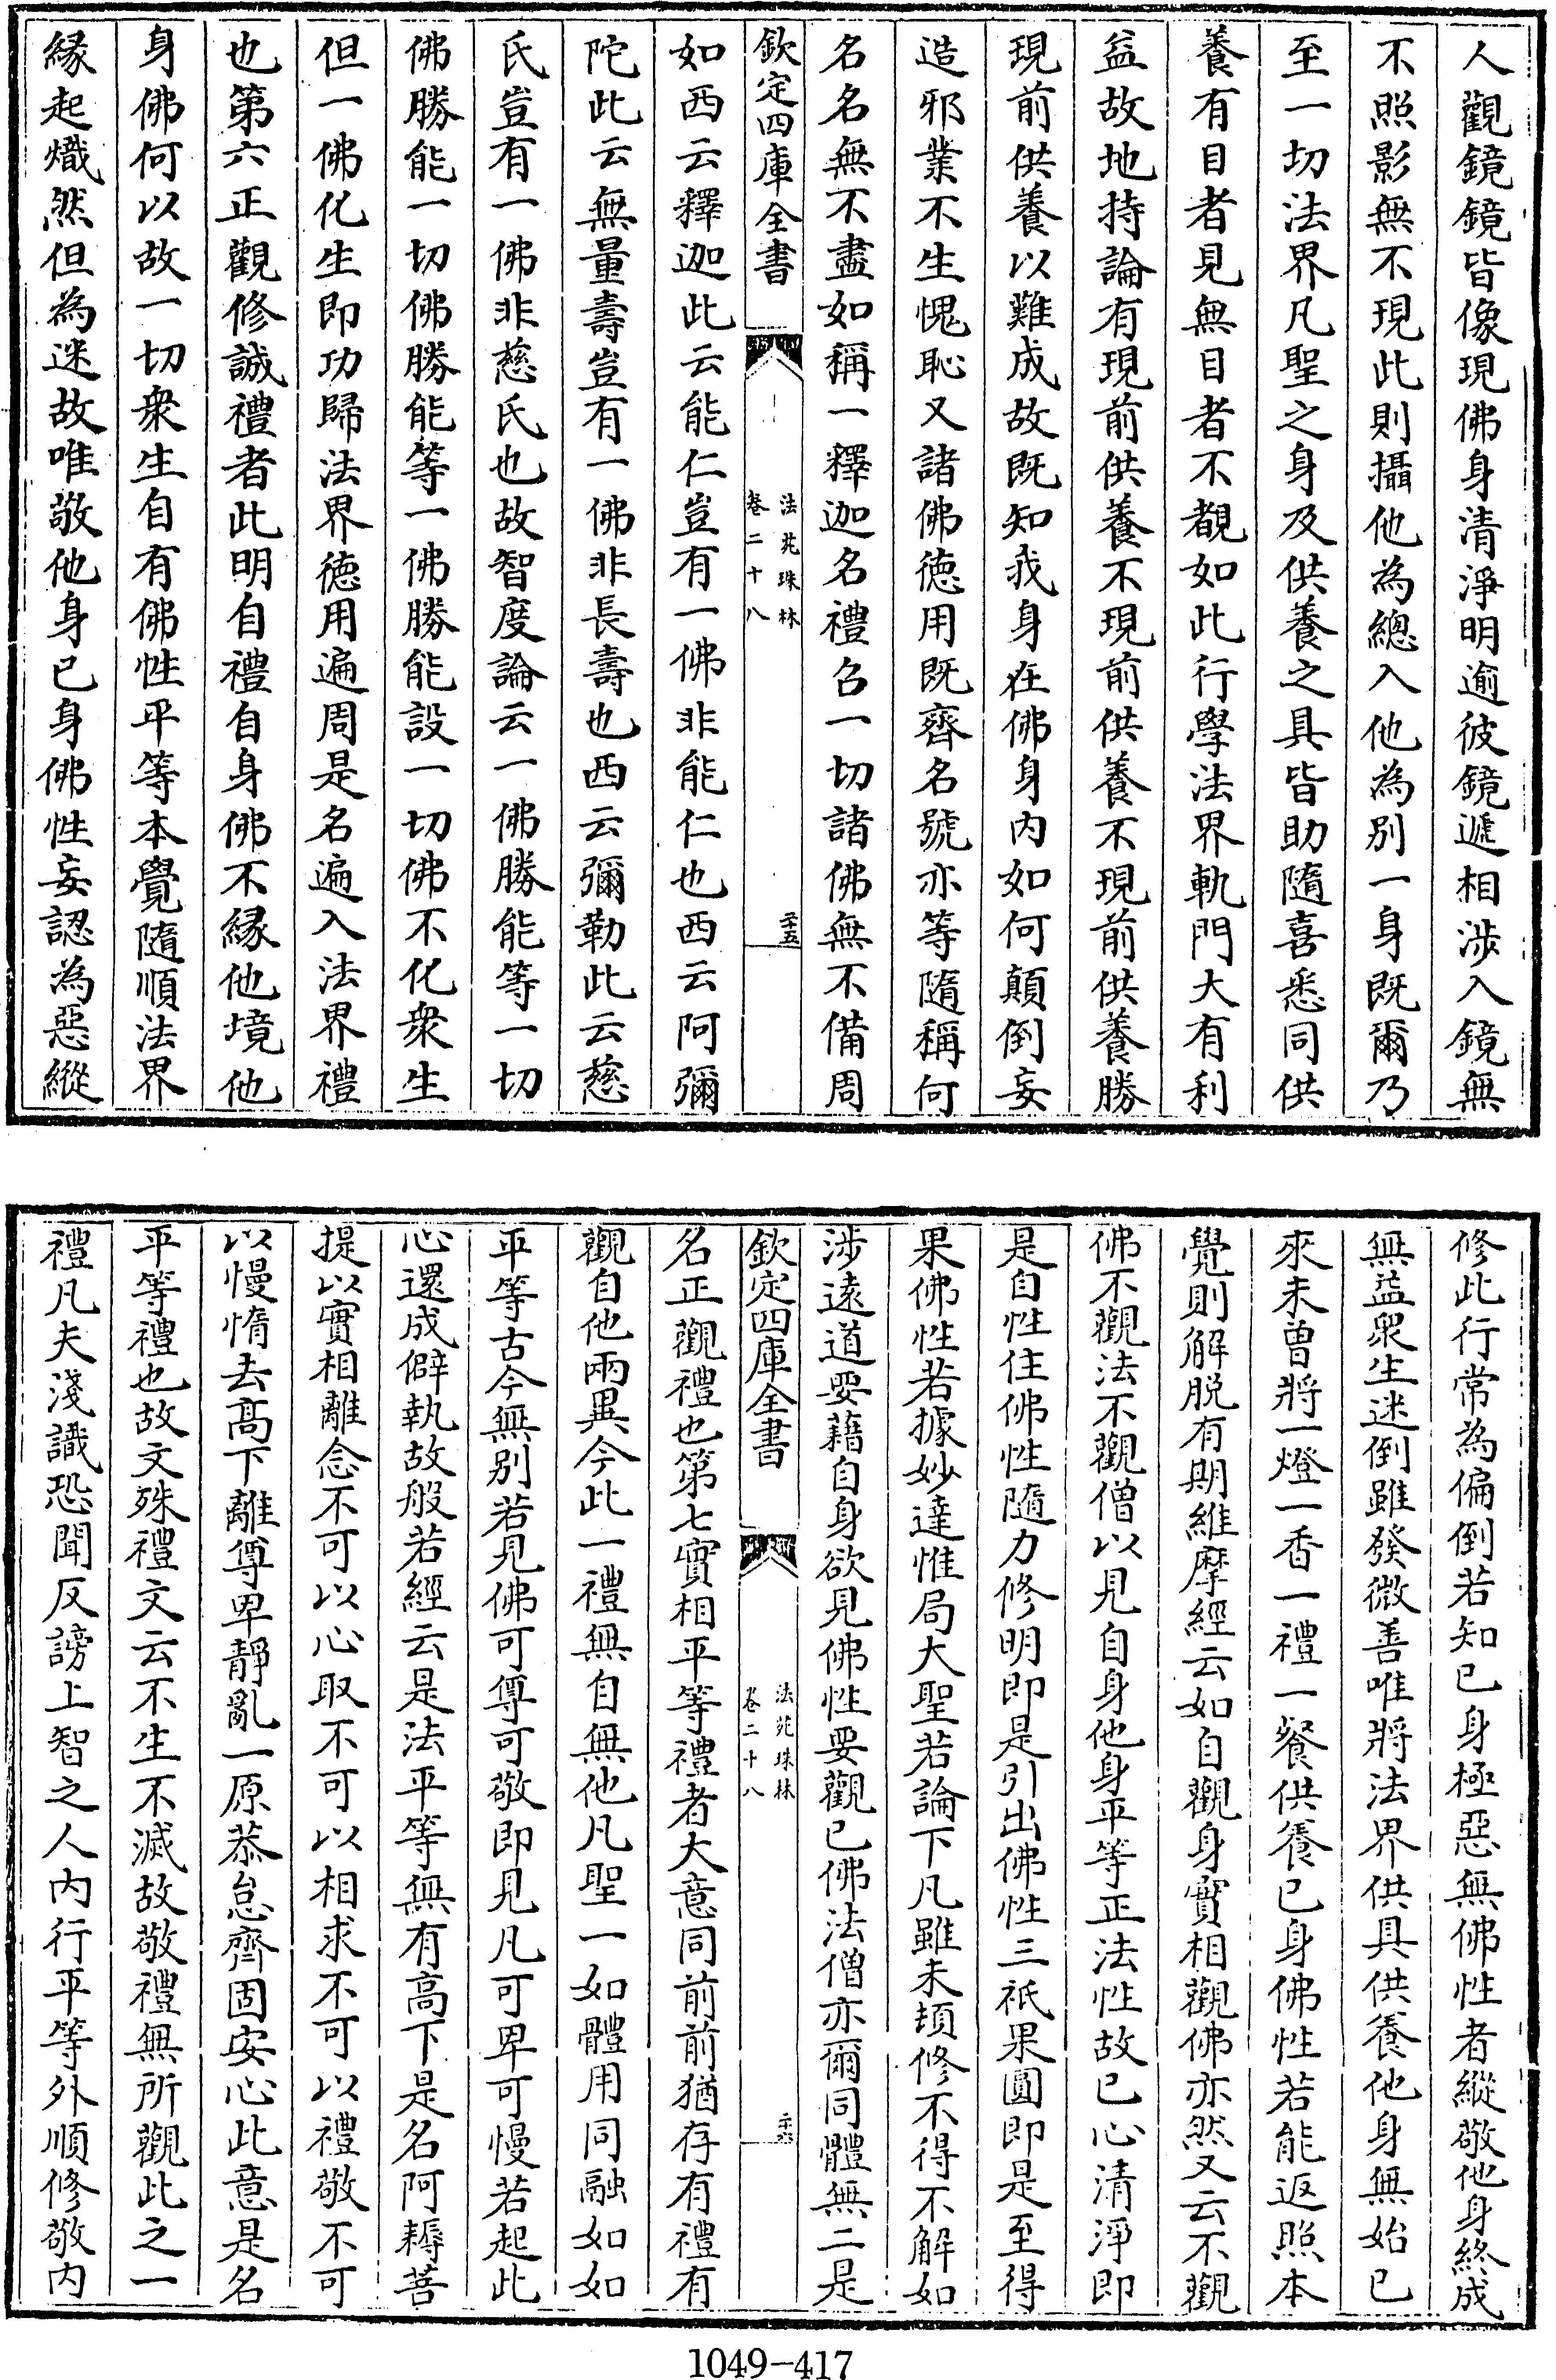 人觀鏡鏡皆像現佛身清淨明逾彼鏡遞相涉入鏡無
不照影無不現此則攝他為總入他為別一身既爾乃
至一切法界凡聖之身及供養之具皆助隨喜悉同供
養有目者見無目者不覩如此行學法界軌門大有利
益故地持論有現前供養不現前供養不現前供養勝
現前供養以難成故既知我身在佛身内如何顛倒妄
造邪業不生愧恥又諸佛徳用既齊名號亦等隨稱何
名名無不盡如稱一釋迦名禮召一切諸佛無不備周
欽定四庫全書
法苑珠林
卷二十八
二十五
如西云釋迦此云能仁豈有一佛非能仁也西云阿彌
陀此云無量壽豈有一佛非長壽也西云彌勒此云慈
氏豈有一佛非慈氏也故智度論云一佛勝能等一切
佛勝能一切佛勝能等一佛勝能設一切佛不化衆生
但一佛化生即功歸法界徳用遍周是名遍入法界禮
也第六正觀修誠禮者此明自禮自身佛不縁他境他
身佛何以故一切衆生自有佛性平等本覺隨順法界
縁起熾然但為迷故唯敬他身已身佛性妄認為惡縱
修此行常為偏倒若知已身極惡無佛性者縱敬他身終成
無益衆生迷倒雖發微善唯將法界供具供養他身無始已
來未曾將一燈一香一禮一餐供養已身佛性若能返照本
覺則解脱有期維摩經云如自觀身實相觀佛亦然又云不觀
佛不觀法不觀僧以見自身他身平等正法性故已心清淨即
是自性住佛性隨力修明即是引出佛性三祇果圓即是至得
果佛性若據妙達惟局大聖若論下凡雖未頓修不得不解如
涉遠道要藉自身欲見佛性要觀已佛法僧亦爾同體無二是
欽定四庫全書
法苑珠林
卷二十八
二十六
名正觀禮也第七實相平等禮者大意同前前猶存有禮有
觀自他兩異今此一禮無自無他凡聖一如體用同融如如
平等古今無别若見佛可尊可敬即見凡可卑可慢若起此
心還成僻執故般若經云是法平等無有高下是名阿耨菩
提以實相離念不可以心取不可以相求不可以禮敬不可
以慢惰去髙下離尊卑靜亂一原恭怠齊固安心此意是名
平等禮也故文殊禮文云不生不滅故敬禮無所觀此之一
禮凡夫淺識恐聞反謗上智之人内行平等外順修敬内
1049-417